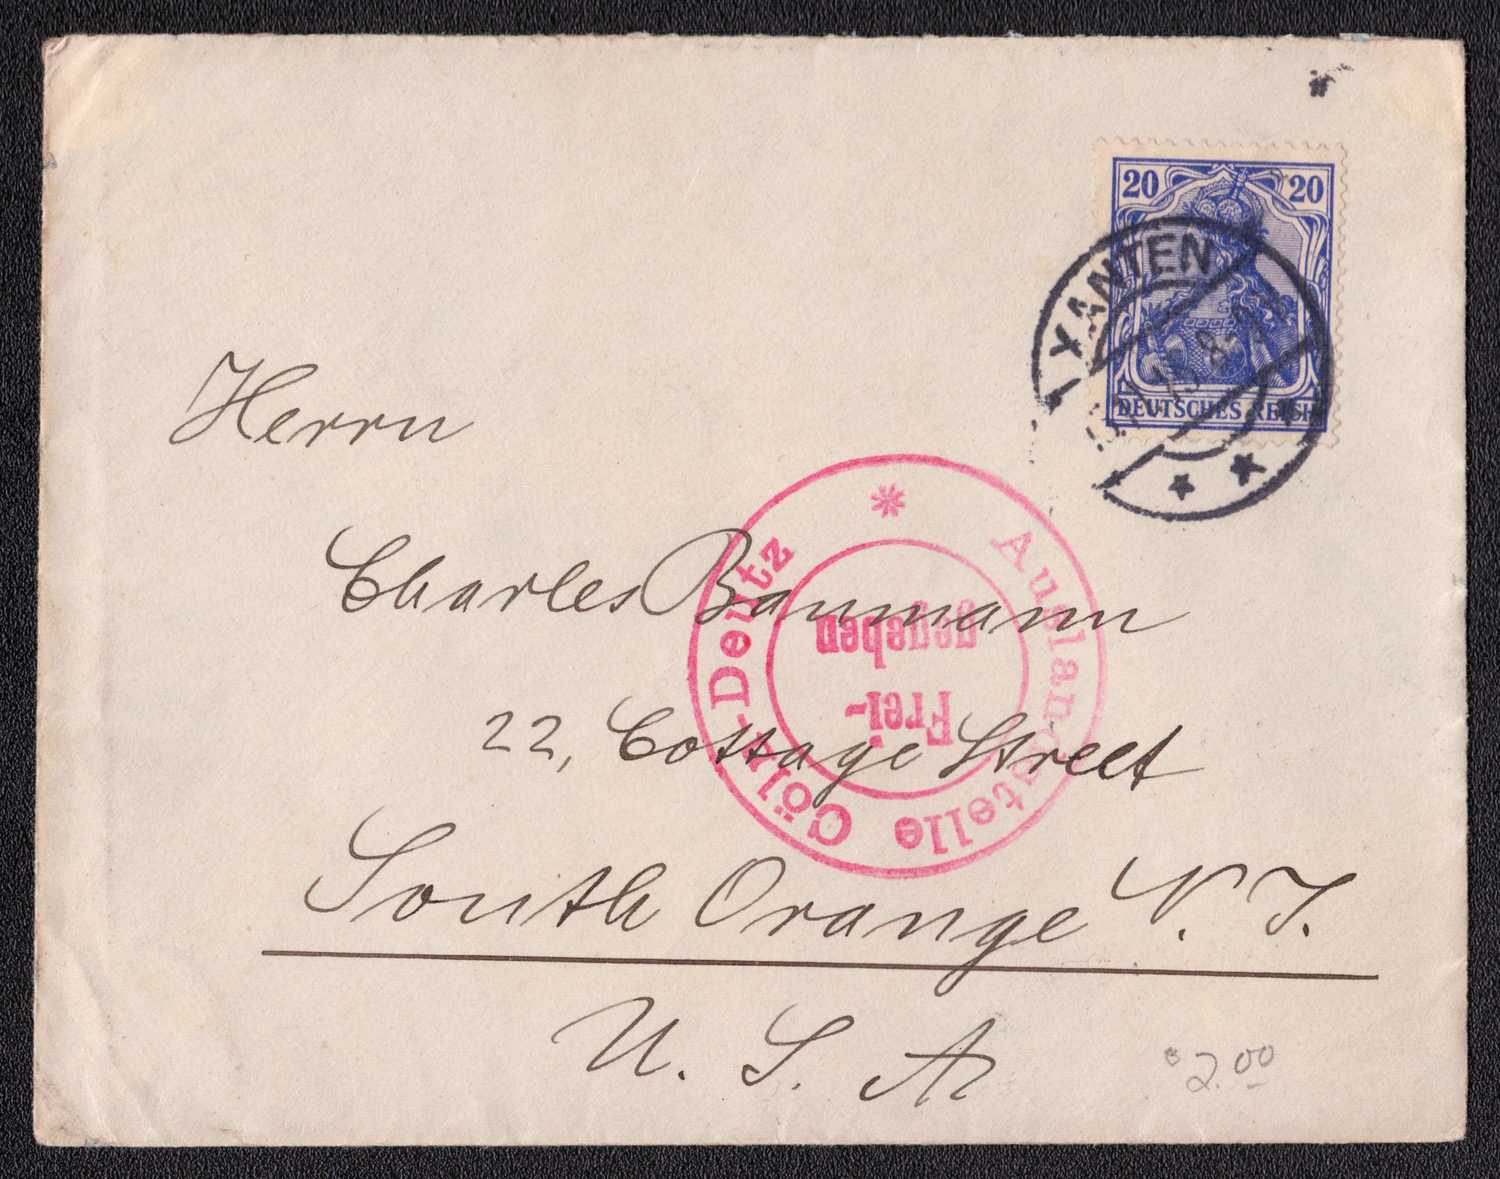 20 20
XANTEN
8-9
DEUTSCHES REICH
Herrn
Charles Baumann
22, Cottage Street
South Orange N. J.
U. S. A
* Auslandstelle Cöln-Deutz
Frei-
gegeben
$2.00